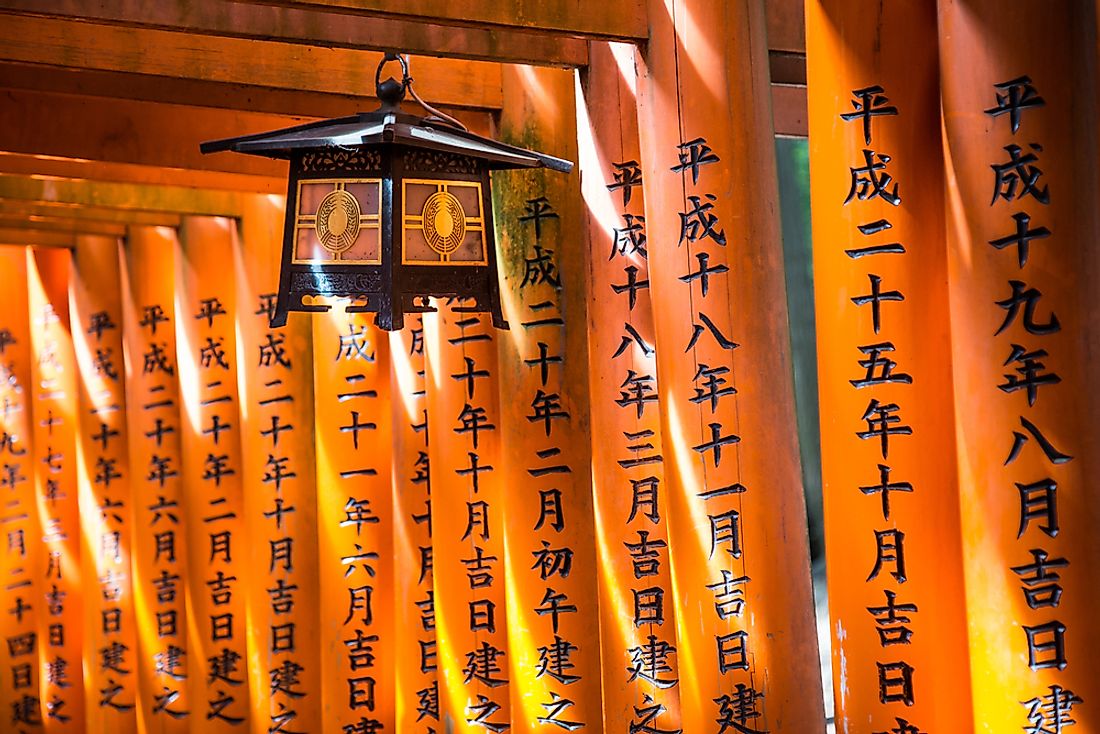 平成十九年八月吉日建
平成二十五年十月吉日
平成十八年十一月吉日建
平成十八年三月吉日建之
平成二十年二月初午建之
二十年十月吉日建之
月吉日建
成二十一年六月吉日
平成二十年十月吉日建之
平成二十年二月吉日建之
平成二十年六月吉日建之
平成二十年六月吉日建之
平成二十七年三月吉日建之
九年二月二十四日建